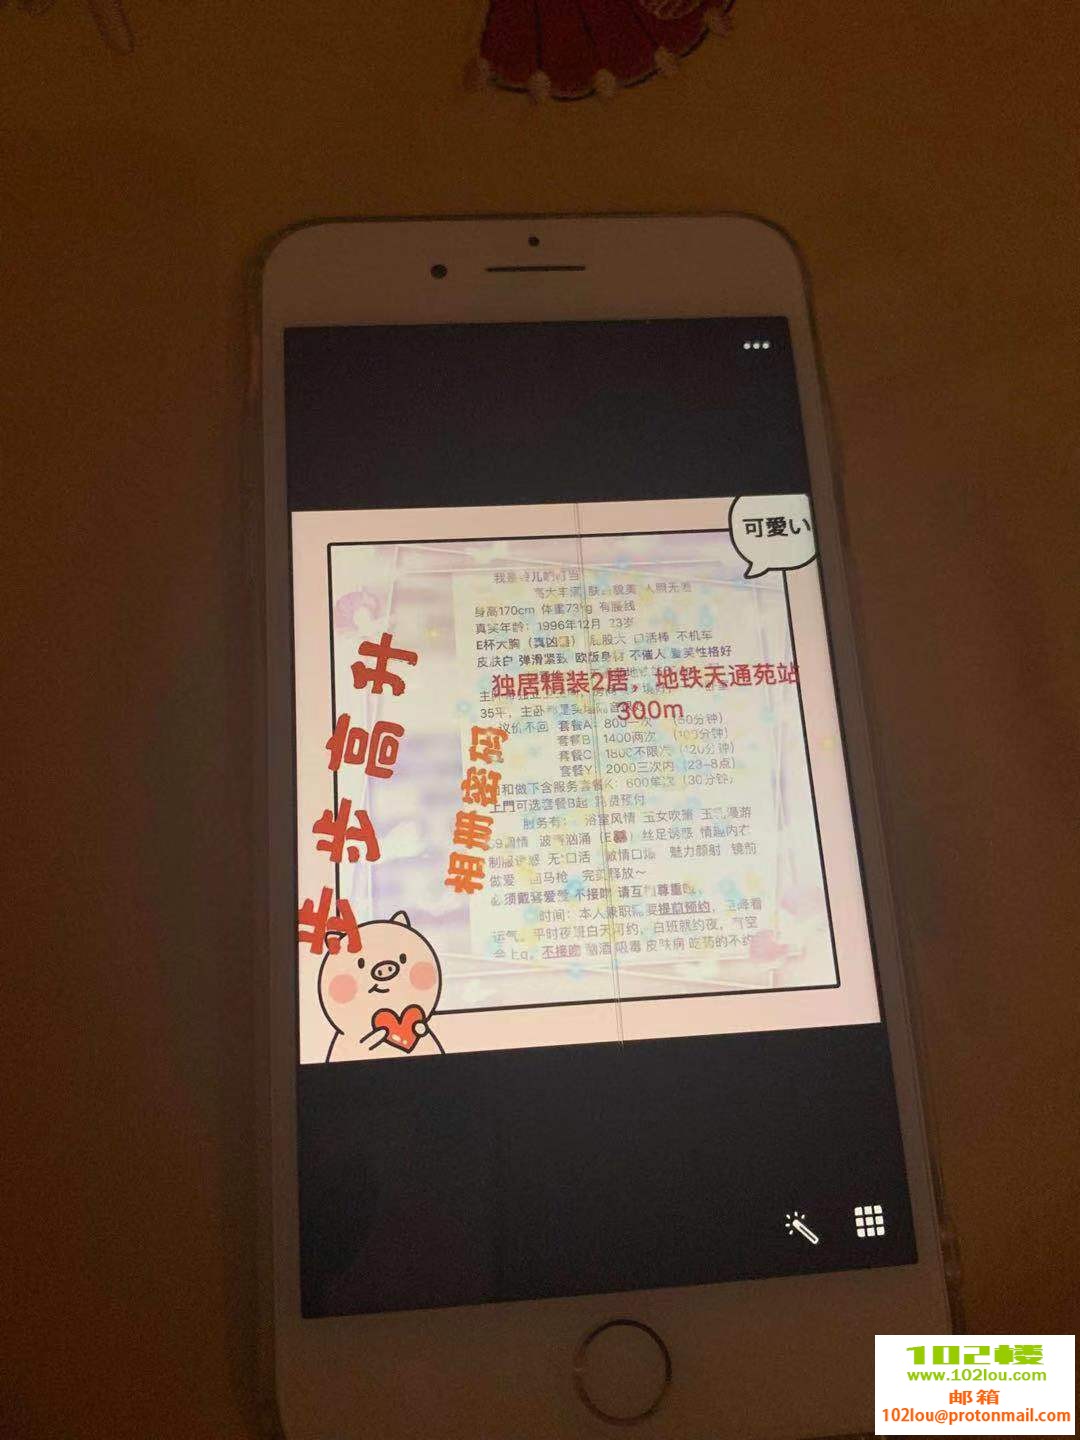 可愛い
步步高升
相册密码
我是 儿 叮当
高大丰满 肤 貌美 人照无
身高170cm 体重73kg 有腰线
真实年龄：1996年12月 23岁
E杯大胸（真凶 ） 屁股大 口活棒 不机车
皮肤白 弹滑紧致 欧版身 不催人 爱笑性格好
独居精装2居，地铁天通苑站
300m
35平，主卧
议价不回 套餐A：800一次 （60分钟）
套餐B：1400两次 （ 分钟）
套餐C：1800不限次（120分钟）
套餐Y：2000三次内（23-8点）
和做下含服务套餐K：600单次（30分钟）
上門可选套餐B起 路费预付
服务有： 浴室风情 玉女吹箫 漫游
69调情 波 汹涌 丝足诱惑 情趣内衣
制服诱惑 无 口活 激情口爆 魅力颜射 镜前
做爱 回马枪 完美释放～
必须戴 不接吻 请互相尊重
时间：本人兼职需要提前预约， 看
运气。平时夜班白天可约，白班就约夜， 空
会上q。不接吻 酗酒 吸毒 皮肤病 吃药的不约
102楼
www.102lou.com
邮箱
102lou@protonmail.com